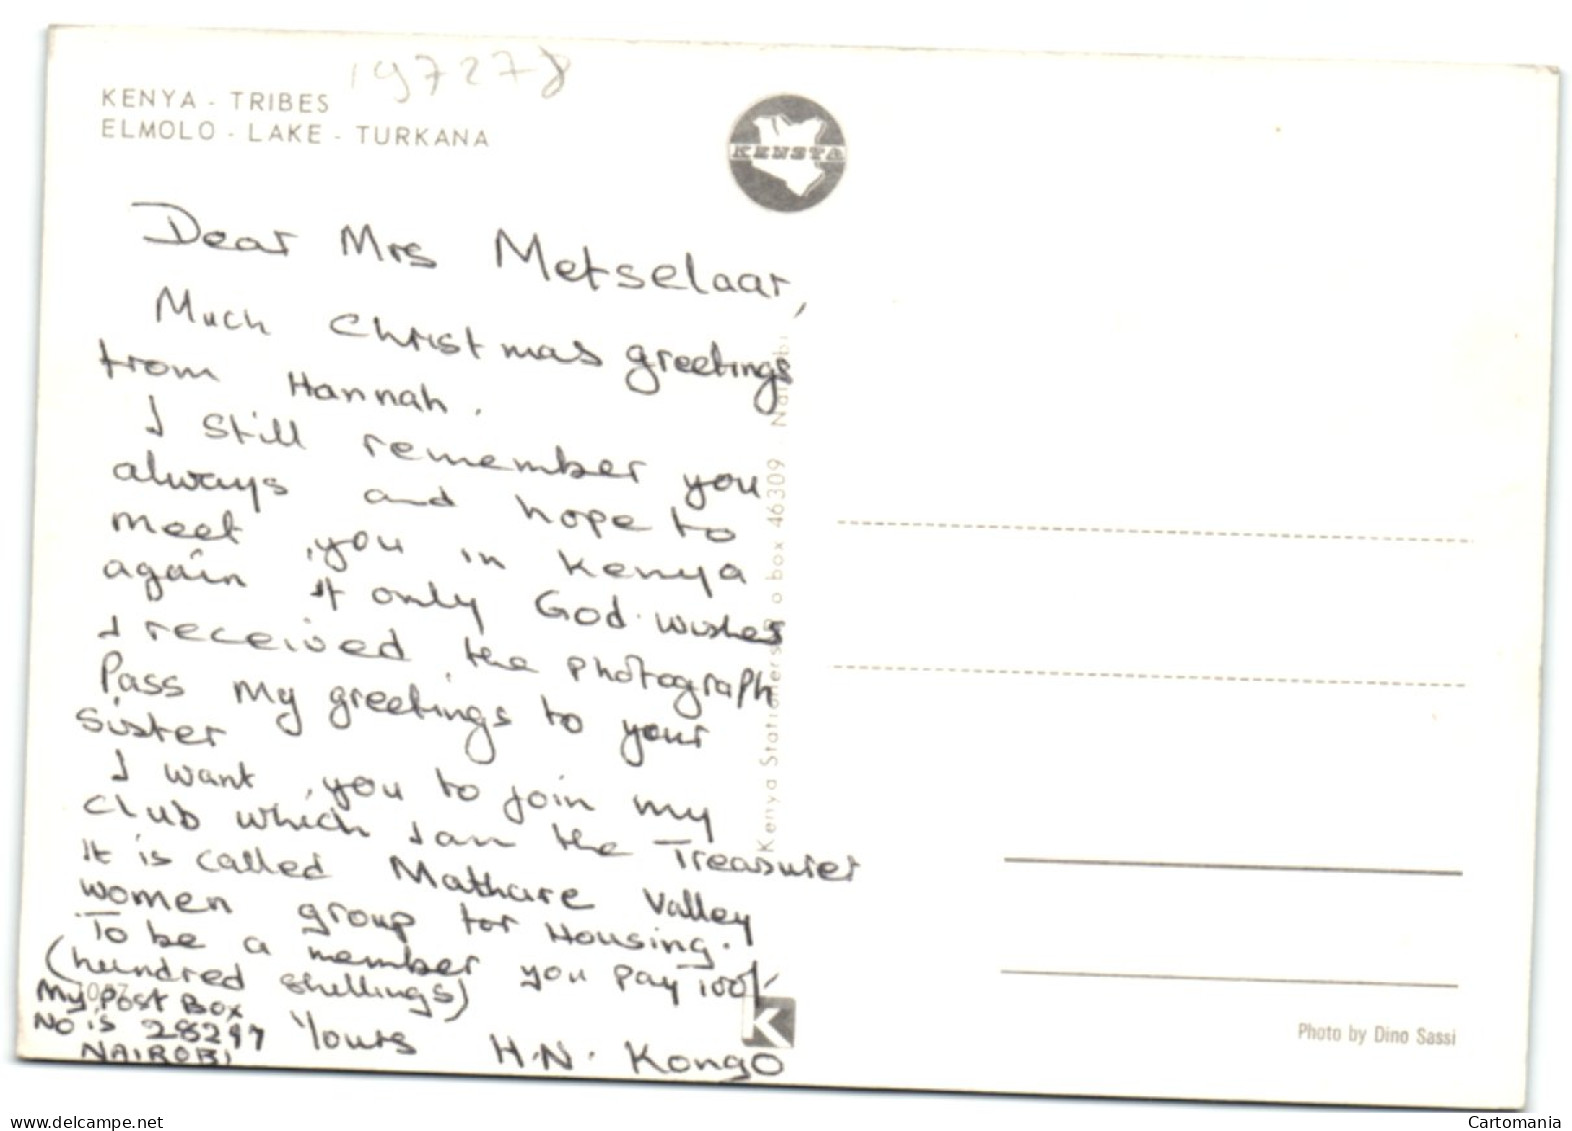 197278
KENYA - TRIBES
ELMOLO - LAKE - TURKANA
KENSTA
Dear Mrs Metselaar,
Much Christmas greetings
from Hannah.
I still remember you
always and hope to
meet you in Kenya
again if only God wishes
I received the photograph
Pass my greetings to your
Sister
I want you to join my
club which I am the Treasurer
It is called Mathare Valley
women group for Housing.
To be a member you pay 100/-
(hundred shellings)
My Post Box
No is 28297
NAIROBI
Yours H.N. Kongo
Kenya Stationers P o box 46309 Nairobi
K
Photo by Dino Sassi
Delcampe.net
Cartomania